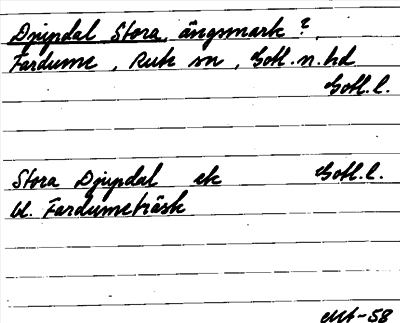 Djupdal Stora, ängsmark?
Fardume, Rute sn, Gotl. n. hd
Gotl. l.
Stora Djupdal ek Gotl. l.
bl. Fardumeträsk
-58